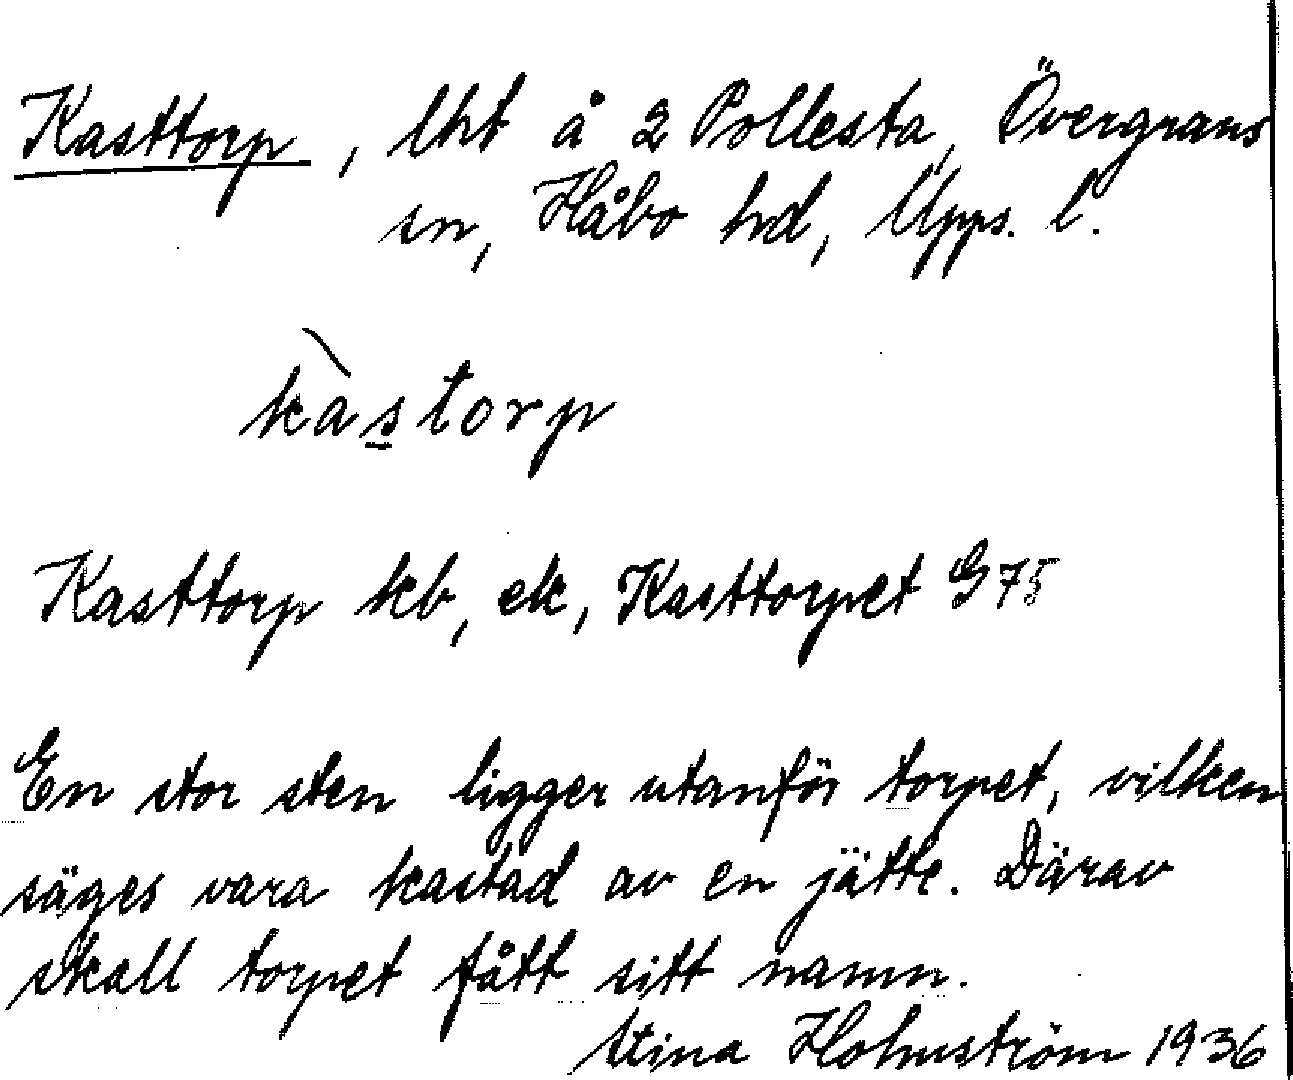 Kasttorp, lht å 2 Pollesta, Övergrans
sn, Håbo hd, Upps. l.
kàstorp
Kasttorp kb, ek, Kasttorpet G 75
En stor sten ligger utanför torpet, vilken
säges vara kastad av en jätte. Därav
skall torpet fått sitt namn.
Stina Holmström 1936